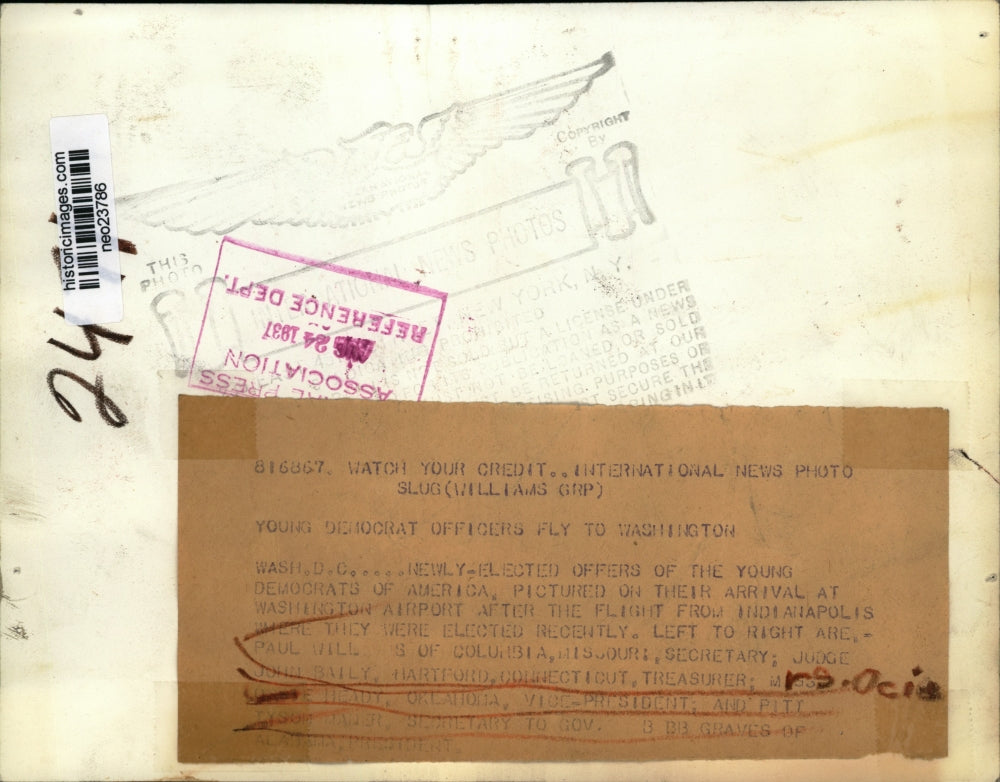 historicimages.com
neo23786
24
COPYRIGHT
BY
THIS
PHOTO
NEWS PHOTOS
NEW YORK, N.Y.
LICENSE UNDER
AS A NEWS
LOANED OR SOLD
BE RETURNED AT OUR
PURPOSES OR
SECURE THE
REFERENCE DEPT.
24 1937
ASSOCIATION
PRESS
816867. WATCH YOUR CREDIT..INTERNATIONAL NEWS PHOTO
SLUG(WILLIAMS GRP)
YOUNG DEMOCRAT OFFICERS FLY TO WASHINGTON
WASH.D.C.....NEWLY-ELECTED OFFERS OF THE YOUNG
DEMOCRATS OF AMERICA, PICTURED ON THEIR ARRIVAL AT
WASHINGTON AIRPORT AFTER THE FLIGHT FROM INDIANAPOLIS
WHERE THEY WERE ELECTED RECENTLY. LEFT TO RIGHT ARE,-
PAUL WILL S OF COLUMBIA,MISSOURI,SECRETARY; JUDGE
JOHN BAILY, HARTFORD,CONNECTICUT,TREASURER;
HEADY, OKLAHOMA, VICE-PRESIDENT; AND PITT
SECRETARY TO GOV. B BB GRAVES OF
ALABAMA,PRESIDENT.